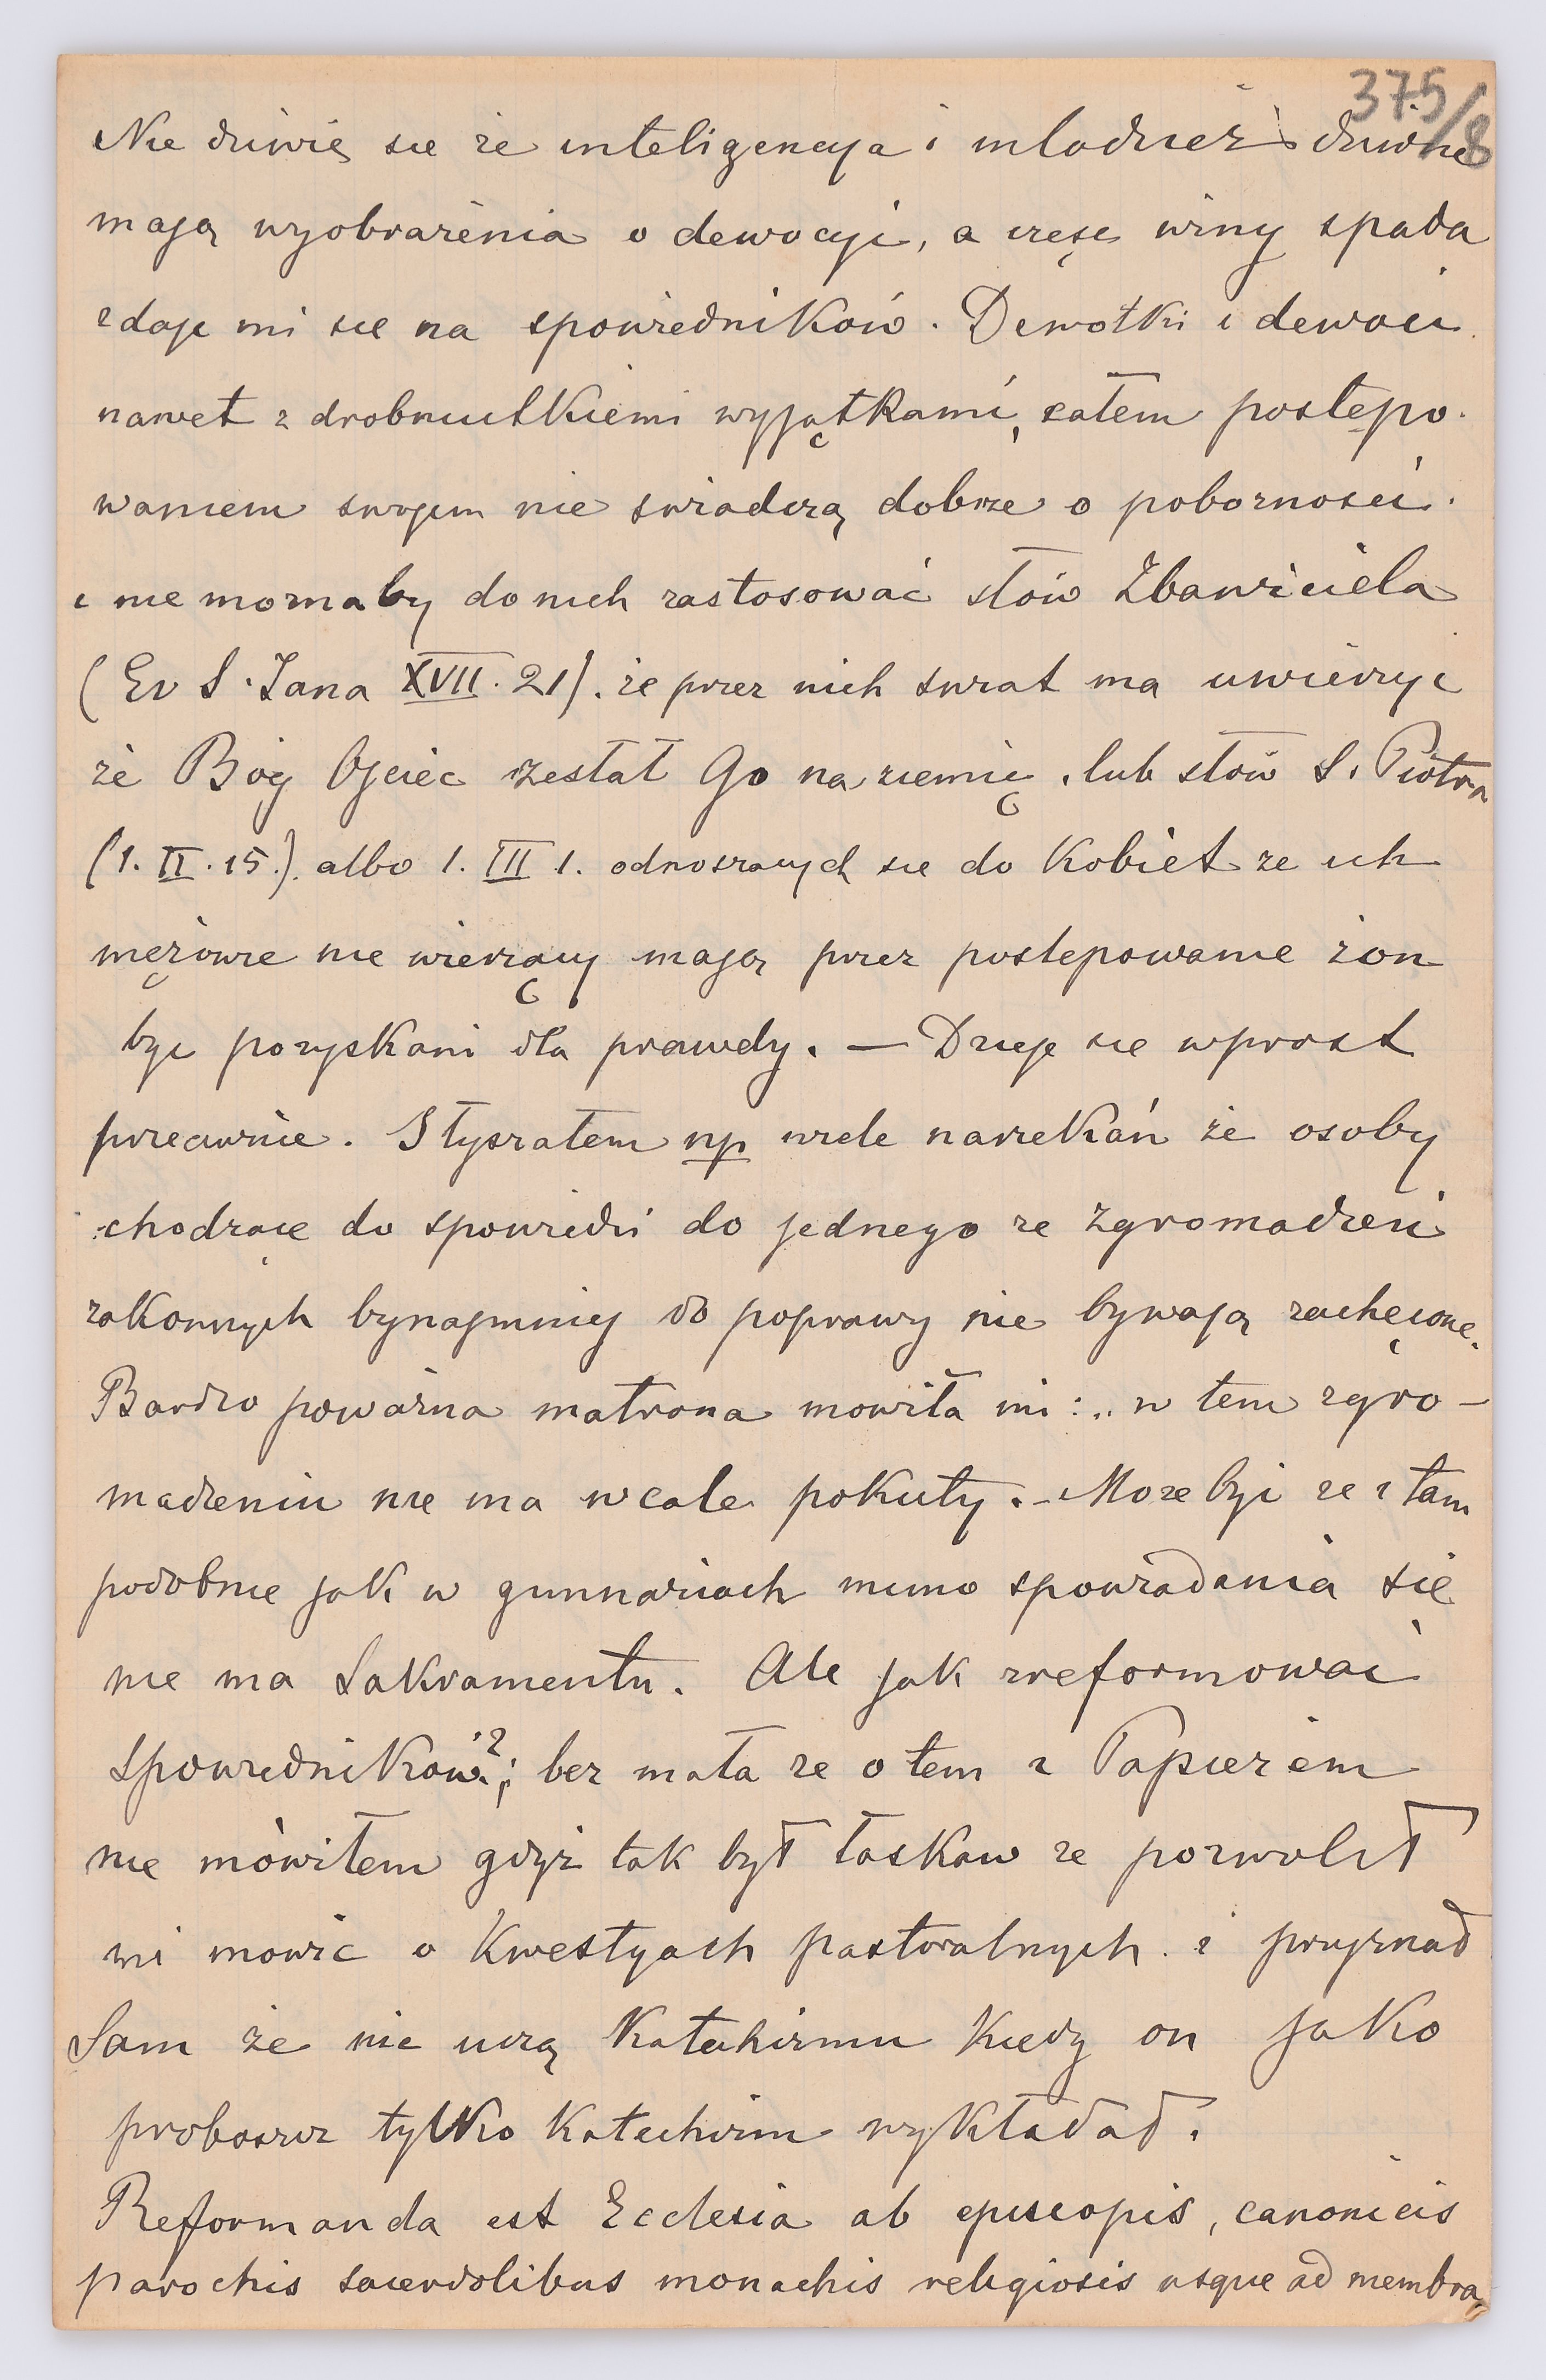 375/8
Nie dziwię się że inteligencya i młodzież dziwne
mają wyobrażenia o dewocyi, a częśc winy spada
zdaje mi się na spowiedników. Dewotki i dewoci
nawet z drobniutkiemi wyjątkami, całem postępo-
waniem swojem nie świadczą dobrze o pobożności.
i nie możnaby do nich zastosować słów Zbawiciela
(Ev S. Jana XVII. 21). że przez nich świat ma uwierzyć
że Bóg Ojciec zesłał Go na ziemię, lub słów S. Piotra
(1. II. 15.). albo 1. III 1. odnoszących się do Kobiet że ich
mężowie nie wierzący mają przez postepowanie żon
być pozyskani dla prawdy. — Dzieje się wprost
przeciwnie. Słyszałem np wiele narzekań że osoby
chodzące do spowiedzi do jednego ze zgromadzeń
zakonnych bynajmniej do poprawy nie bywają zachęcone.
Bardzo poważna matrona mowiła mi: „w tem zgro-
madzeniu nie ma wcale pokuty. - Może być że i tam
podobnie jak w gimnaziach mimo spowiadania się
nie ma Sakramentu. Ale jak zreformować
spowiedników?; bez mała że o tem z Papieżem
nie mówiłem gdyż tak był łaskaw że pozwolił
mi mówic o Kwestyach pastoralnych i przyznał
Sam że nie uczą Katechizmu kiedy on jako
proboszcz tylko Katechizm wykładał.
Reformanda est Ecclesia ab episcopis, canonicis
parochis sacerdotibus monachis religiosis usque ad membra,